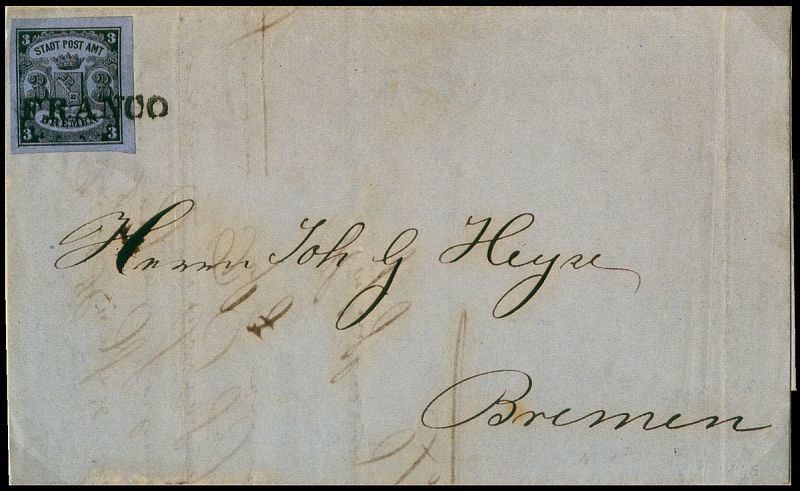 3 3
STADT POST AMT
3 3
FRANCO
BREMEN
3 3
Herrn Joh G Heyse
Bremen